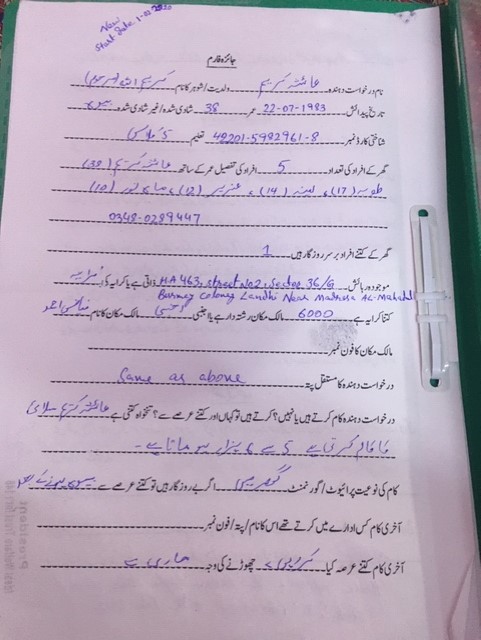 New
Start Date 1-02-2020
جائزہ فارم
نام درخواست دہندہ عائشہ کریم ولدیت/شوہر کا نام کریم اللہ (مرحوم)
تاریخ پیدائش 22-07-1983 عمر 38 شادی شدہ/غیر شادی شدہ بیوہ
شناختی کارڈ نمبر 42201-5982961-8 تعلیم 5 کلاس
گھر کے افراد کی تعداد 5 افراد کی تفصیل عمر کے ساتھ عائشہ کریم (38)
طوبہ (17)، (14)، (12)، (10)
0348-0289447
گھر کے کتنے افراد برسر روزگار ہیں 1
موجودہ رہائش HA 463, Street No 2, Sector 36/G ذاتی ہے یا کرایہ کی کرایہ
Burmey Colony Landhi Near Madrasa AL-Mahad
کتنا کرایہ ہے 6000 مالک مکان رشتہ دار ہے یا اجنبی اجنبی مالک مکان کا نام احمد
مالک مکان کا فون نمبر
درخواست دہندہ کا مستقل پتہ Same as above
درخواست دہندہ کام کرتے ہیں یا نہیں؟ کرتے ہیں تو کہاں اور کتنے عرصے سے؟ تنخواہ کتنی ہے عائشہ کریم سلائی
کا کام کرتی ہے 5 سے 6 ہزار ہو جاتا ہے۔
کام کی نوعیت پرائیوٹ/گورنمنٹ گھر میں اگر بے روزگار ہیں تو کتنے عرصے سے
آخری کام کس ادارے میں کرتے تھے اس کا نام/پتہ/فون نمبر
آخری کام کتنے عرصہ کیا چھوڑنے کی وجہ جاری ہے
President